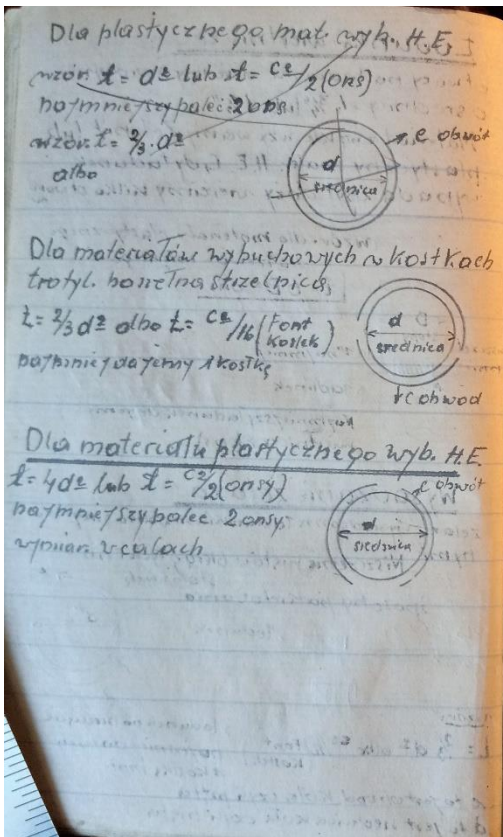 Dla plastycznego mat. wyb. H.E.
wzór t = d² lub t = c²/2 (ons)
najmniejszy palec 2 ons.
wzór t = 2/3 · d²
albo
d
średnica
c obwót
Dla materiałów wybuchowych w kostkach
trotyl. bawełna strzelnicza
t = 2/3 d² albo t = c²/16 (Font Kostek)
najmniej dajemy 1 kostkę
d
średnica
c obwod
Dla materiału plastycznego wyb. H.E.
t = 4d² lub t = c²/2 (onsy)
najmniejszy palec 2 onsy.
wymiar w calach
c obwót
d
średnica